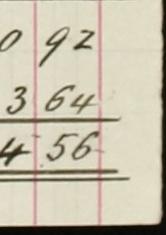 0 92
3 64
4 56